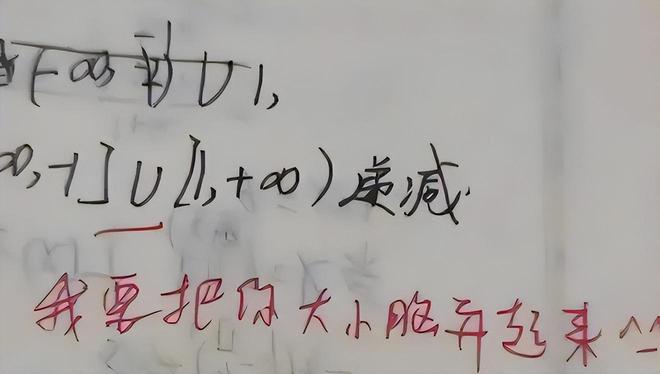 (-∞, -1) ∪ 1,
∞, -1] ∪ [1, +∞) 递减.
我要把你大小脑弄起来